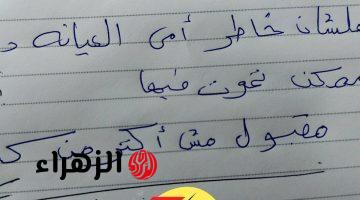 علشان خاطر أمى العيانه
ممكن تموت فيها
مقبول مش أكتر من
الزهراء